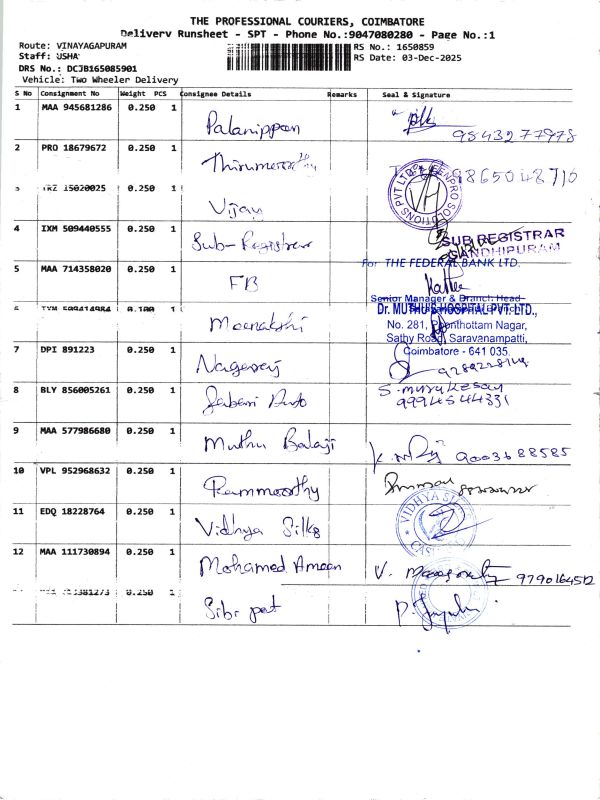 THE PROFESSIONAL COURIERS, COIMBATORE
Delivery Runsheet - SPT - Phone No.:9047080280 - Page No.:1
Route: VINAYAGAPURAM
RS No.: 1650859
Staff: USHA
RS Date: 03-Dec-2025
DRS No.: DCJB165085901
Vehicle: Two Wheeler Delivery
S No Consignment No Weight PCS Consignee Details Remarks Seal & Signature
1 MAA 945681286 0.250 1 Palanippan
9543277978
2 PRO 18679672 0.250 1 Thirumoorthy
9865048710
15020025 0.250 1 Vijay
4 IXM 509440555 0.250 1 Sub-Registrar
SUB REGISTRAR
GANDHIPURAM
For THE FEDERAL BANK LTD.
5 MAA 714358020 0.250 1 FB
Senior Manager & Branch Head
Dr. MUTHU'S HOSPITAL PVT. LTD.,
0.100 1 Meenakshi
No. 281, Poonthottam Nagar,
Sathy Road, Saravanampatti,
Coimbatore - 641 035.
7 DPI 891223 0.250 1 Nagaraj
8 BLY 856005261 0.250 1 Sabari Auto
S. murukesan
9994544331
9 MAA 577986680 0.250 1 Muthu Balaji
9003688585
10 VPL 952968632 0.250 1 Rammoorthy
11 EDQ 18228764 0.250 1 Vidhya Silks
VIDHYA
12 MAA 111730894 0.250 1 Mohamed Ameen
9790164512
0.250 1 Sibi